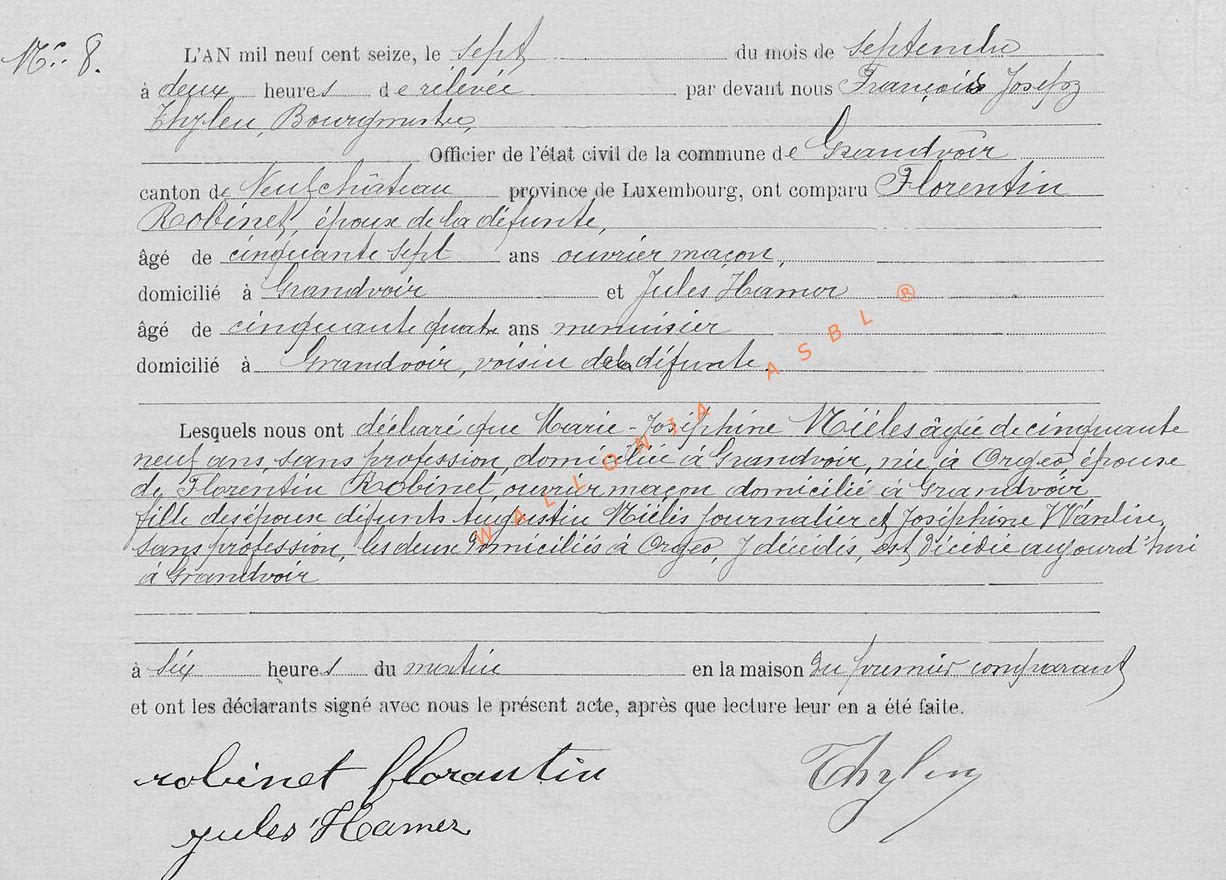 N° 8.
L'AN mil neuf cent seize, le sept du mois de septembre
à deux heures de relevée par devant nous François Joseph
Thylen, Bourgmestre,
Officier de l'état civil de la commune de Grandvoir
canton de Neufchâteau province de Luxembourg, ont comparu Florentin
Robinet, époux de la défunte,
âgé de cinquante sept ans ouvrier maçon,
domicilié à Grandvoir et Jules Hamer
âgé de cinquante quatre ans menuisier
domicilié à Grandvoir, voisin de la défunte.
Lesquels nous ont déclaré que Marie-Joséphine Niéles âgée de cinquante
neuf ans, sans profession, domiciliée à Grandvoir, née à Orgeo, épouse
de Florentin Robinet, ouvrier maçon domicilié à Grandvoir
fille des époux défunts Augustin Niélés journalier et Joséphine
sans profession, les deux domiciliés à Orgeo, y décédés, est décédée aujourd'hui
à Grandvoir
à six heures du matin en la maison du premier comparant
et ont les déclarants signé avec nous le présent acte, après que lecture leur en a été faite.
robinet florantin Thylen
jules Hamer
WALLONIA ASBL ®